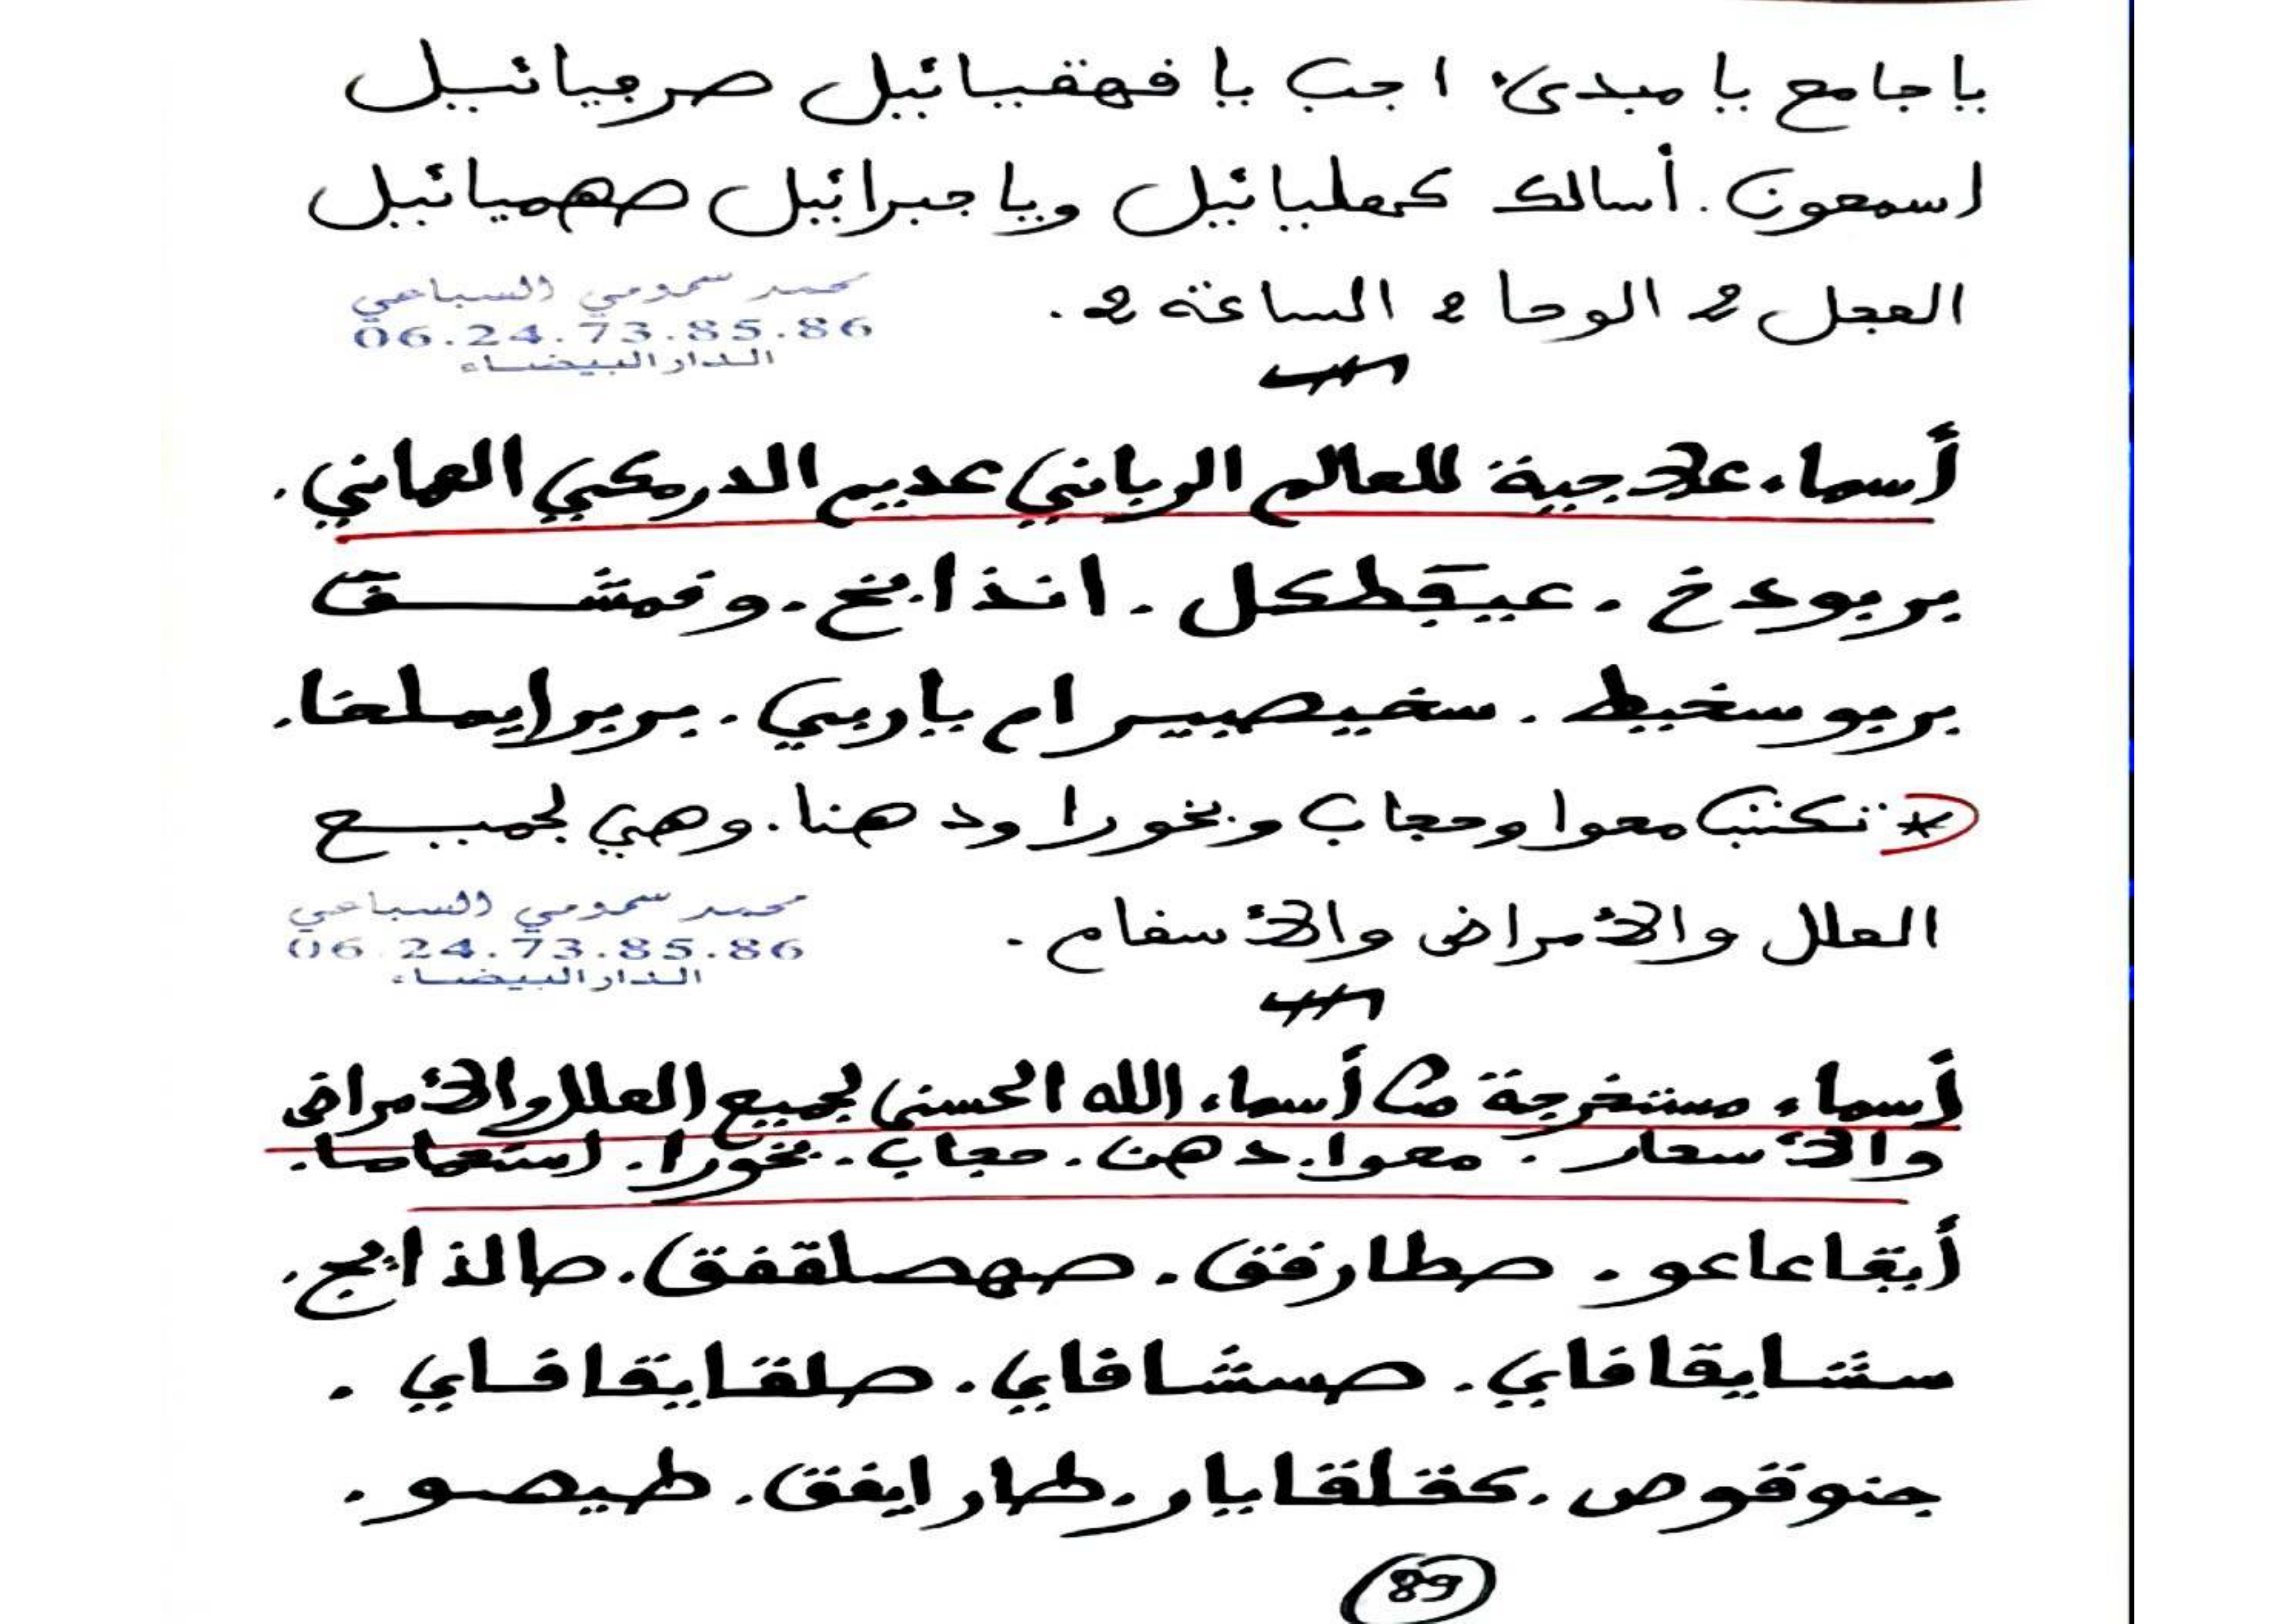 يا جامع يا مبدئ اجب يا فهقيائيل صرميائيل
اسمعون. أسالك كهليائيل ويا جبرائيل صهميائيل
العجل 2 الوحا 2 الساعة 2.
محمد سمومي السباعي
06.24.73.85.86
الدار البيضاء
أسماء علاجية للعالم الرباني عديم الدرمكي العماني.
بربودخ . عيقطكل . انذابخ . وقمشق
بربوسخيط . سخيصبير ام ياربي . بربرايملخا.
* تكتب محوا وحجاب وبخورا ودهنا. وهي لجميع
العلل والأمراض والأسقام .
محمد سمومي السباعي
06.24.73.85.86
الدار البيضاء
أسماء مستخرجة من أسماء الله الحسنى لجميع العلل والأمراض
والأسحار . محوا. دهن. حجاب. بخورا. استحماما.
أبقاعاعو . صطارفق. صهصلقفق. صالذابج.
سشايقافاي. صسشافاي. صلقايقافاي .
جنوقوص . كقلقايار. طهارايفق. طيصو .
89